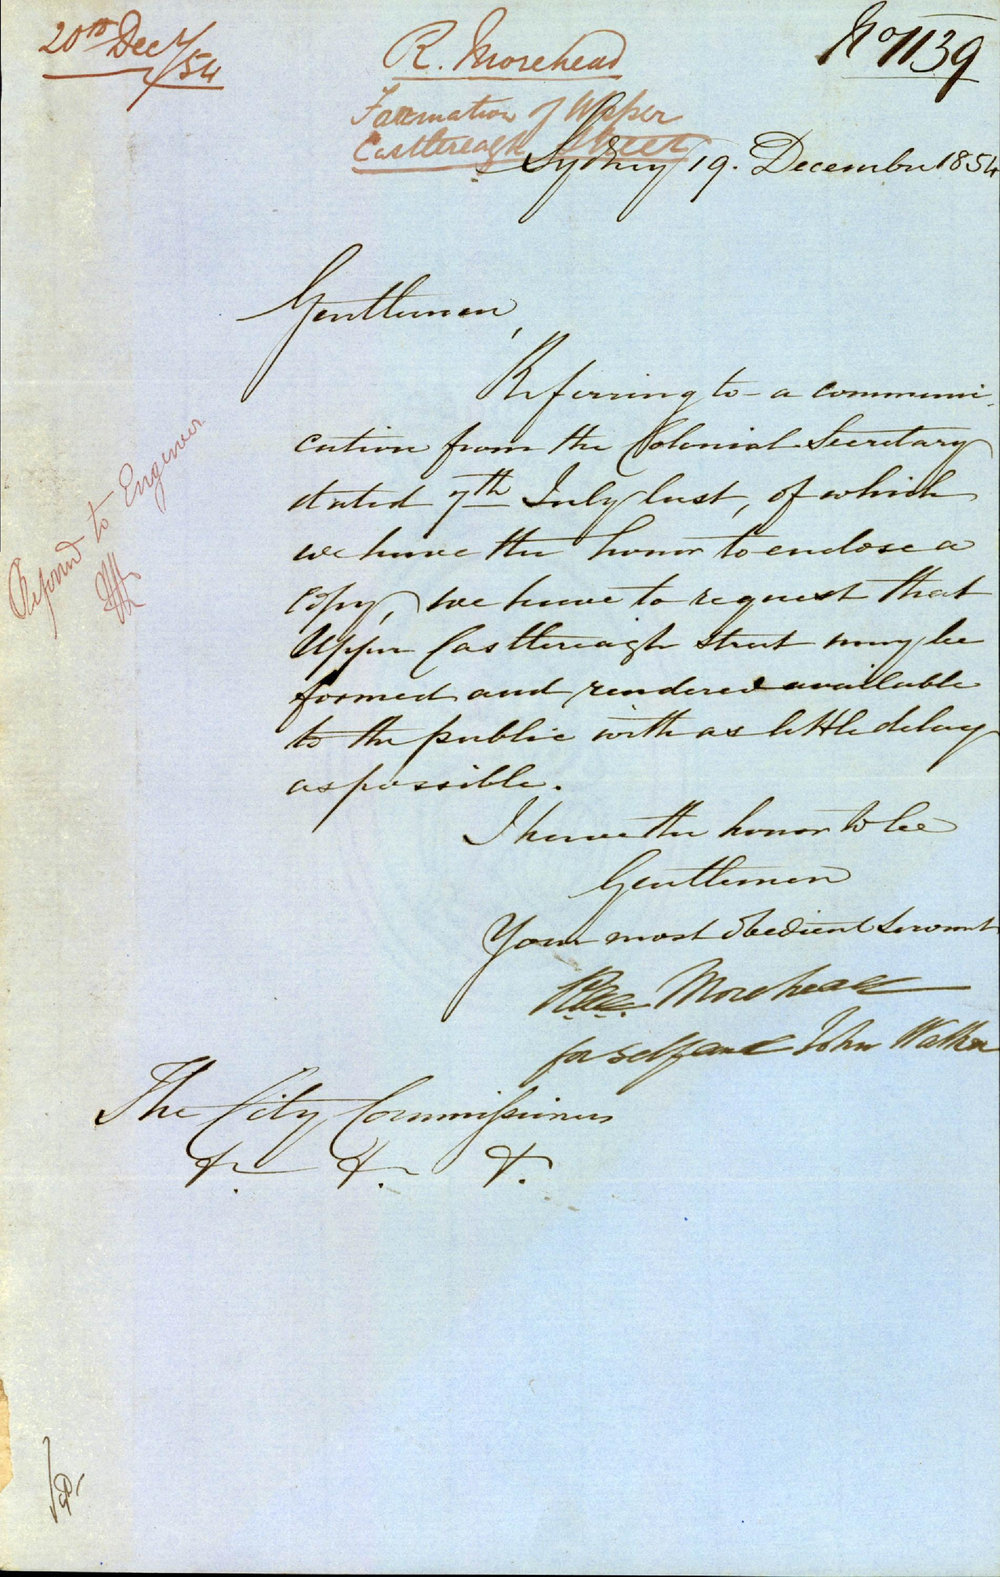 20th Decr/54
R. Morehead
No 1139
Formation of Upper
Castlereagh Street
Sydney 19. December 1854
Gentlemen,
Referring to a communi-
cation from the Colonial Secretary
dated 7th July last, of which
we have the honor to enclose a
copy, we have to request that
Upper Castlereagh Street may be
formed and rendered available
to the public with as little delay
as possible.
I have the honor to be
Gentlemen
Your most obedient Servant
Morehead
for self and John Walker
The City Commissioners
&. &. &.
to Engineer